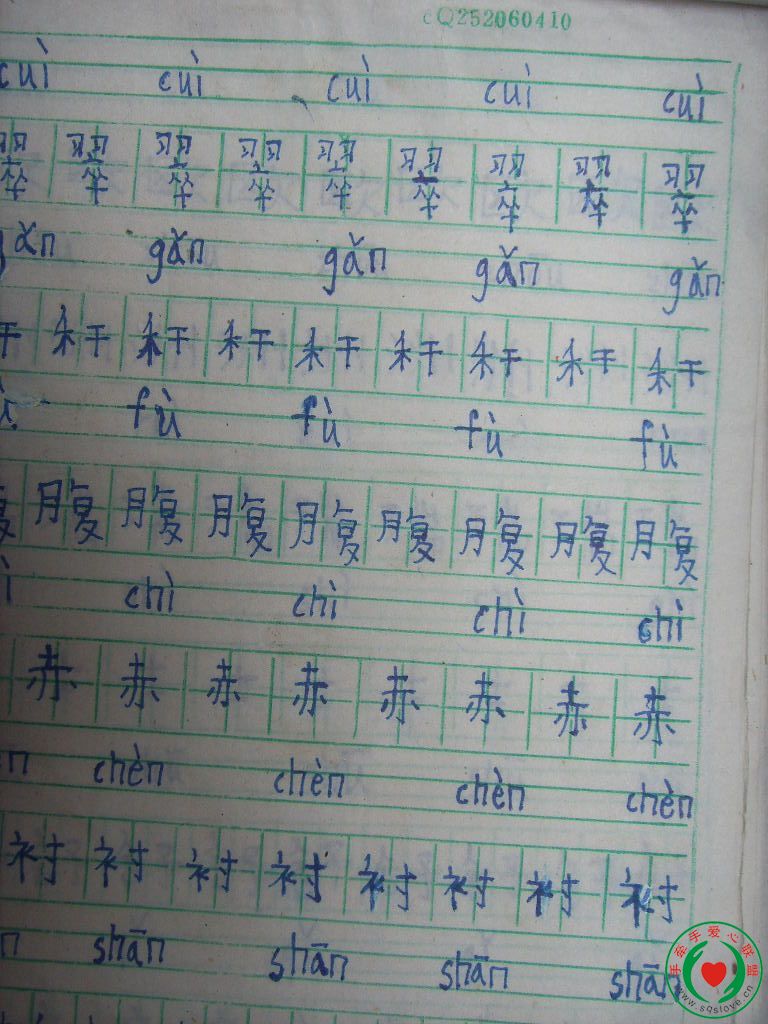 cQ252060410
cuì cuì cuì cuì cuì
翠 翠 翠 翠 翠 翠 翠 翠 翠
gǎn gǎn gǎn gǎn gǎn
秆 秆 秆 秆 秆 秆 秆 秆
fù fù fù fù
腹 腹 腹 腹 腹 腹 腹 腹
chì chì chì chì
赤 赤 赤 赤 赤 赤 赤 赤
chèn chèn chèn chèn
衬 衬 衬 衬 衬 衬 衬 衬
shān shān shān shān
手牵手爱心联盟
www.sqslove.cn